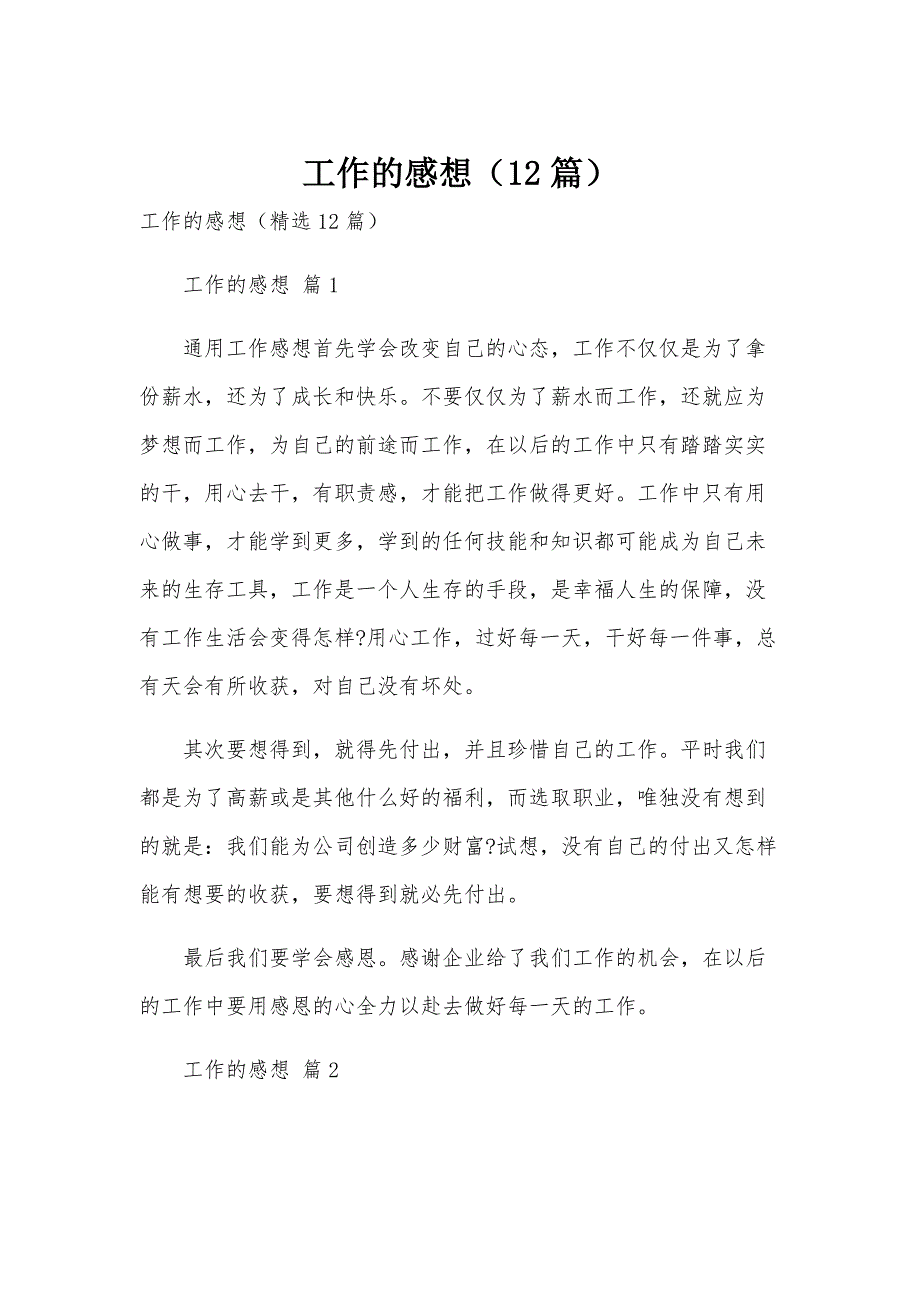 工作的感想（12篇）
工作的感想（精选12篇）
工作的感想 篇1
通用工作感想首先学会改变自己的心态，工作不仅仅是为了拿
份薪水，还为了成长和快乐。不要仅仅为了薪水而工作，还就应为
梦想而工作，为自己的前途而工作，在以后的工作中只有踏踏实实
的干，用心去干，有职责感，才能把工作做得更好。工作中只有用
心做事，才能学到更多，学到的任何技能和知识都可能成为自己未
来的生存工具，工作是一个人生存的手段，是幸福人生的保障，没
有工作生活会变得怎样?用心工作，过好每一天，干好每一件事，总
有天会有所收获，对自己没有坏处。
其次要想得到，就得先付出，并且珍惜自己的工作。平时我们
都是为了高薪或是其他什么好的福利，而选取职业，唯独没有想到
的就是：我们能为公司创造多少财富?试想，没有自己的付出又怎样
能有想要的收获，要想得到就必先付出。
最后我们要学会感恩。感谢企业给了我们工作的机会，在以后
的工作中要用感恩的心全力以赴去做好每一天的工作。
工作的感想 篇2